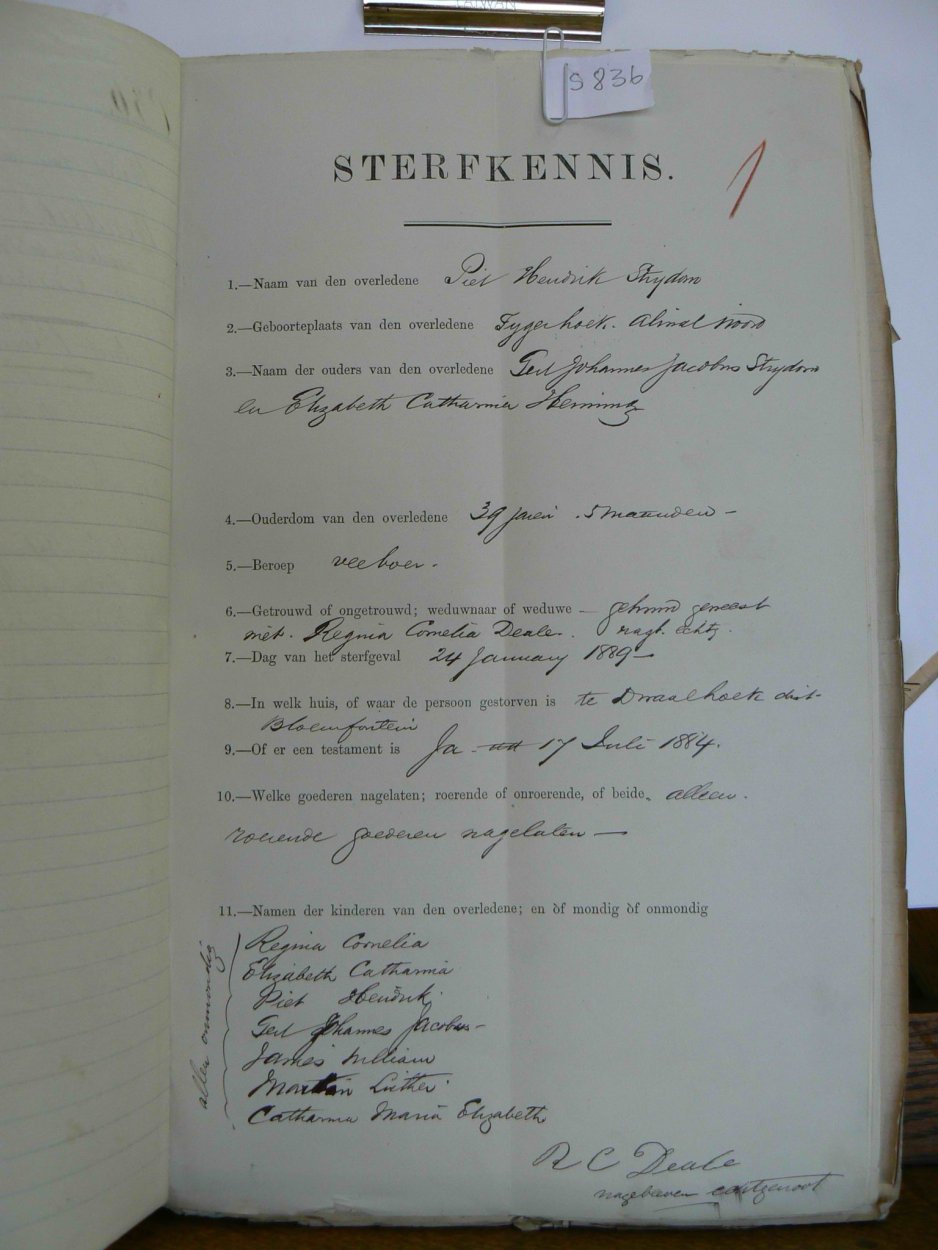 TAIWAN
S 836
STERFKENNIS.
1
1.—Naam van den overledene Piet Hendrik Strydom
2.—Geboorteplaats van den overledene Tygerhoek. Aliwal Noord
3.—Naam der ouders van den overledene Gert Johannes Jacobus Strydom
en Elizabeth Catharina
4.—Ouderdom van den overledene 39 jaren 5 maanden —
5.—Beroep veeboer.
6.—Getrouwd of ongetrouwd; weduwnaar of weduwe — getrouwd geweest
met. Regina Cornelia Deale.
7.—Dag van het sterfgeval 24 January 1889 —
8.—In welk huis, of waar de persoon gestorven is te Draaihoek dist.
Bloemfontein
9.—Of er een testament is Ja 17 Juli 1884.
10.—Welke goederen nagelaten; roerende of onroerende, of beide. alleen.
roerende goederen nagelaten —
11.—Namen der kinderen van den overledene; en òf mondig òf onmondig
allen onmondig
Regina Cornelia
Elizabeth Catharina
Piet Hendrik
Gert Johannes Jacobus
James William
Martin Luther
Catharina Maria Elizabeth
R C Deale
nagebleven echtgenoot